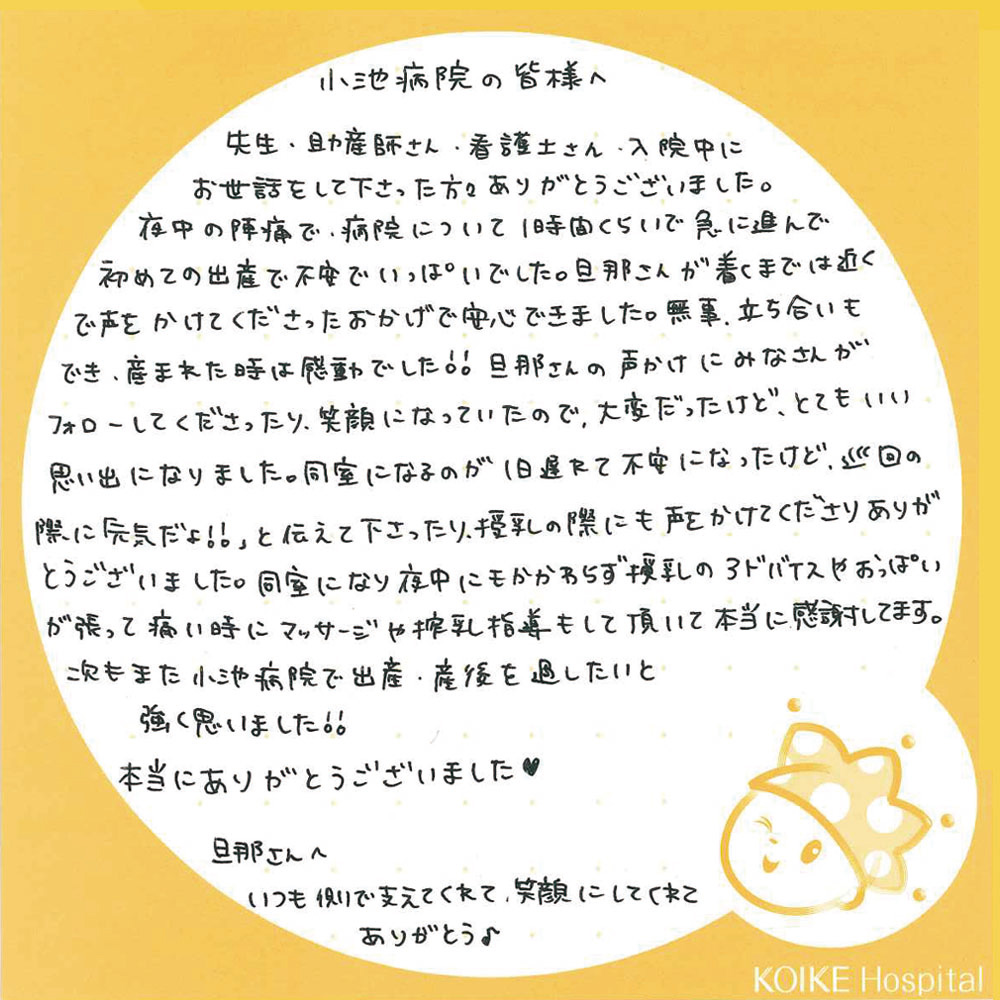 小池病院の皆様へ
先生・助産師さん・看護士さん・入院中に
お世話をして下さった方々ありがとうございました。
夜中の陣痛で、病院について1時間くらいで急に進んで
初めての出産で不安でいっぱいでした。旦那さんが着くまでは近く
で声をかけてくださったおかげで安心できました。無事、立ち合いも
でき、産まれた時は感動でした!! 旦那さんの声かけにみなさんが
フォローしてくださったり、笑顔になっていたので、大変だったけど、とてもいい
思い出になりました。同室になるのが1日遅れて不安になったけど、巡回の
際に「元気だよ!!」と伝えて下さったり、授乳の際にも声をかけてくださりありが
とうございました。同室になり夜中にもかかわらず授乳のアドバイスやおっぱい
が張って痛い時にマッサージや搾乳指導もして頂いて本当に感謝してます。
次もまた小池病院で出産・産後を過したいと
強く思いました!!
本当にありがとうございました♥
旦那さんへ
いつも側で支えてくれて、笑顔にしてくれて
ありがとう♪
KOIKE Hospital